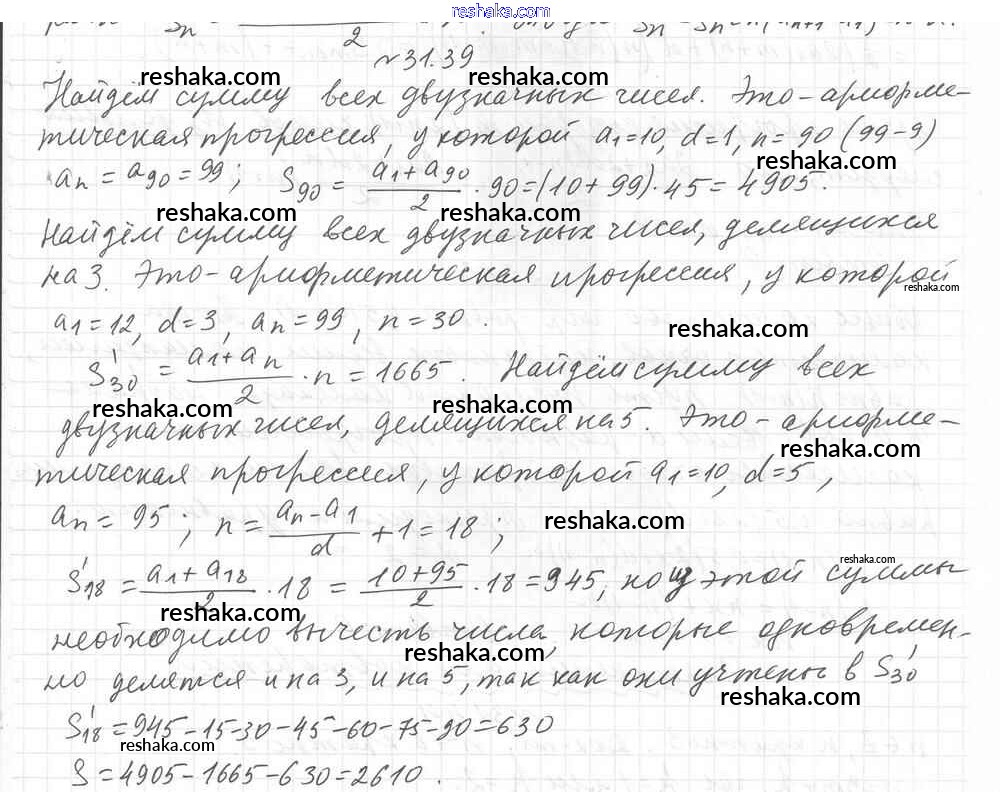 reshaka.com
Sn = 2
№31.39
reshaka.com reshaka.com reshaka.com
Найдём сумму всех двузначных чисел. Это - арифме-
тическая прогрессия, у которой a₁=10, d=1, n=90 (99-9)
reshaka.com
aₙ = a₉₀ = 99; S₉₀ = (a₁+a₉₀)/2 · 90 = (10+99)·45 = 4905.
reshaka.com reshaka.com
Найдём сумму всех двузначных чисел, делящихся
на 3. Это - арифметическая прогрессия, у которой
reshaka.com
a₁=12, d=3, aₙ=99, n=30.
reshaka.com
S'₃₀ = (a₁+aₙ)/2 · n = 1665. Найдём сумму всех
reshaka.com reshaka.com
двузначных чисел, делящихся на 5. Это - арифме-
reshaka.com
тическая прогрессия, у которой a₁=10, d=5,
aₙ = 95; n = (aₙ-a₁)/d + 1 = 18;
reshaka.com
reshaka.com
S'₁₈ = (a₁+a₁₈)/2 · 18 = (10+95)/2 · 18 = 945, но из этой суммы
reshaka.com
необходимо вычесть числа, которые одновремен-
reshaka.com
но делятся и на 3, и на 5, так как они учтены в S'₃₀
reshaka.com
S'₁₈ = 945-15-30-45-60-75-90=630
reshaka.com
S = 4905-1665-630=2610.